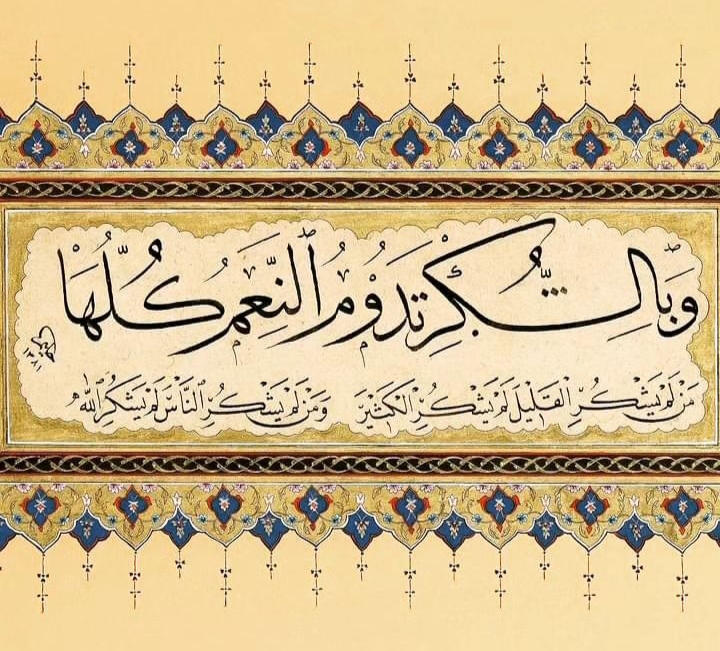 وَبِالشُّكْرِ تَدُومُ ٱلنِّعَمُ كُلُّهَا
مَنْ لَمْ يَشْكُرِ الْقَلِيلَ لَمْ يَشْكُرِ الْكَثِيرَ وَمَنْ لَمْ يَشْكُرِ النَّاسَ لَمْ يَشْكُرِ اللّٰهَ
١٣٨١